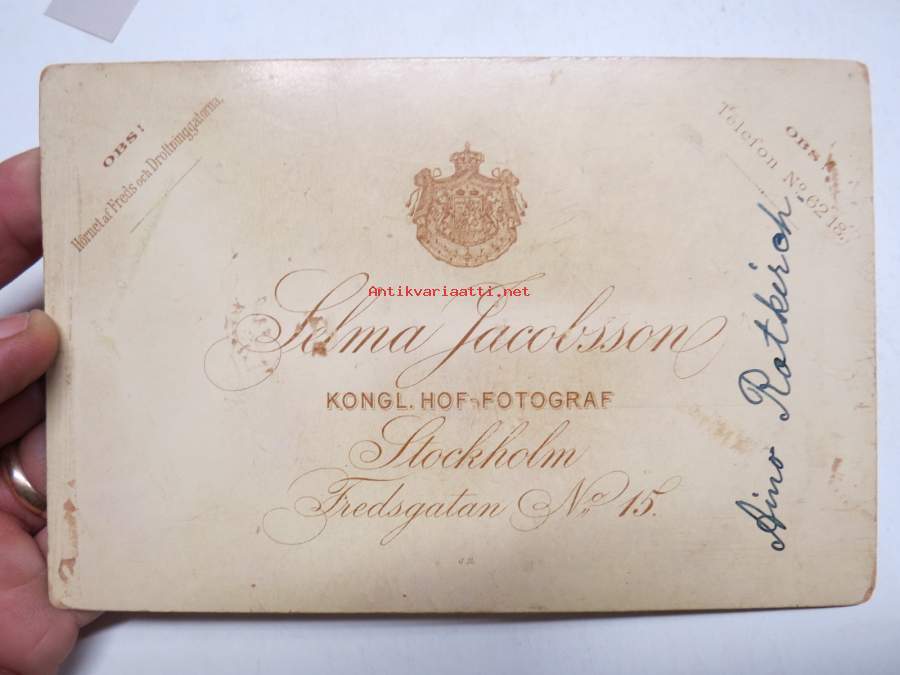 OBS!
Hörnet af Freds och Drottninggatorna.
OBS!
Telefon No 6218.
Antikvariaatti.net
Selma Jacobsson
KONGL. HOF-FOTOGRAF
Stockholm
Fredsgatan No 15.
Aino Rotkirch